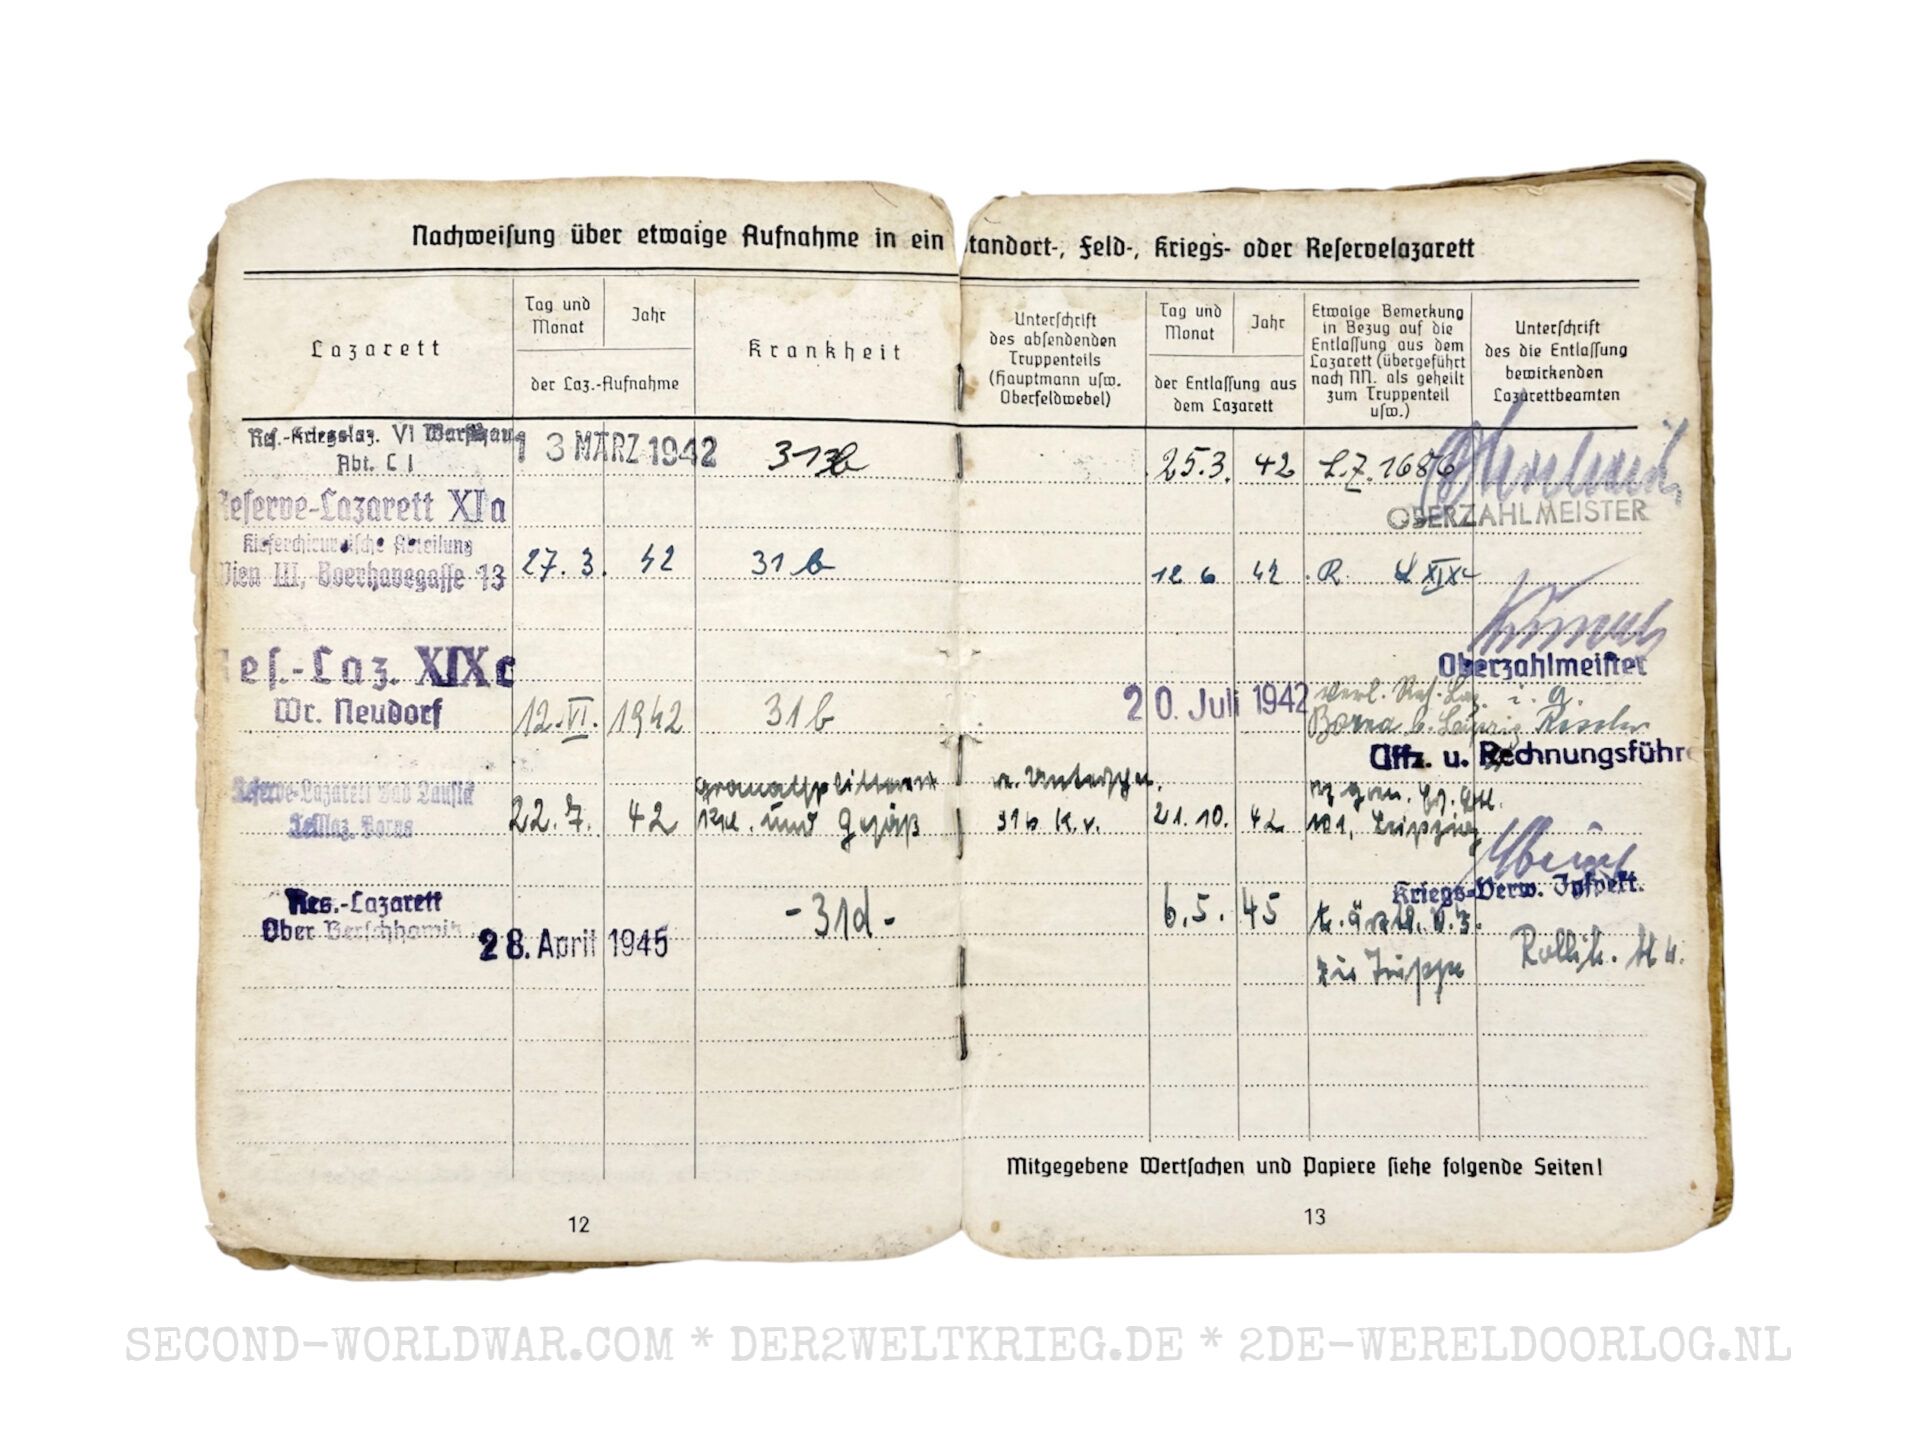 Nachweisung über etwaige Aufnahme in ein
tandort-, Feld-, Kriegs- oder Reservelazarett
Lazarett
Tag und
Monat
Jahr
der Laz.-Aufnahme
Krankheit
Unterschrift
des absendenden
Truppenteils
(Hauptmann usw.
Oberfeldwebel)
Tag und
Monat
Jahr
der Entlassung aus
dem Lazarett
Etwaige Bemerkung
in Bezug auf die
Entlassung aus dem
Lazarett (übergeführt
nach NN. als geheilt
zum Truppenteil
usw.)
Unterschrift
des die Entlassung
bewirkenden
Lazarettbeamten
Res.-Kriegslaz. VI Warschau
Abt. C I
13 MÄRZ 1942
25.3. 42 L.Z. 1686
OBERZAHLMEISTER
eserve-Lazarett XIa
Kieferchirurgische Abteilung
Wien III, Boerhavegasse 13
27. 3. 42 31 b
12 6 42 R. L XIXc
Oberzahlmeister
es.-Laz. XIXc
Wr. Neudorf
12. VI. 1942 31b
20. Juli 1942 verl. Res. Laz. i. a.
Borna b. Leipzig
Uffz. u. Rechnungsführe
Reserve-Lazarett Bad Lausick
Teillaz. Borna
22. 7. 42 Granatsplitter
und Gesäß
31b k.v. 21. 10. 42
101, Leipzig
Kriegs-Verw. Inspekt.
Res.-Lazarett
Ober Berschkowitz
28. April 1945 -31d-
6. 5. 45
zur Truppe
Mitgegebene Wertsachen und Papiere siehe folgende Seiten!
12
13
SECOND-WORLDWAR.COM * DER2WELTKRIEG.DE * 2DE-WERELDOORLOG.NL